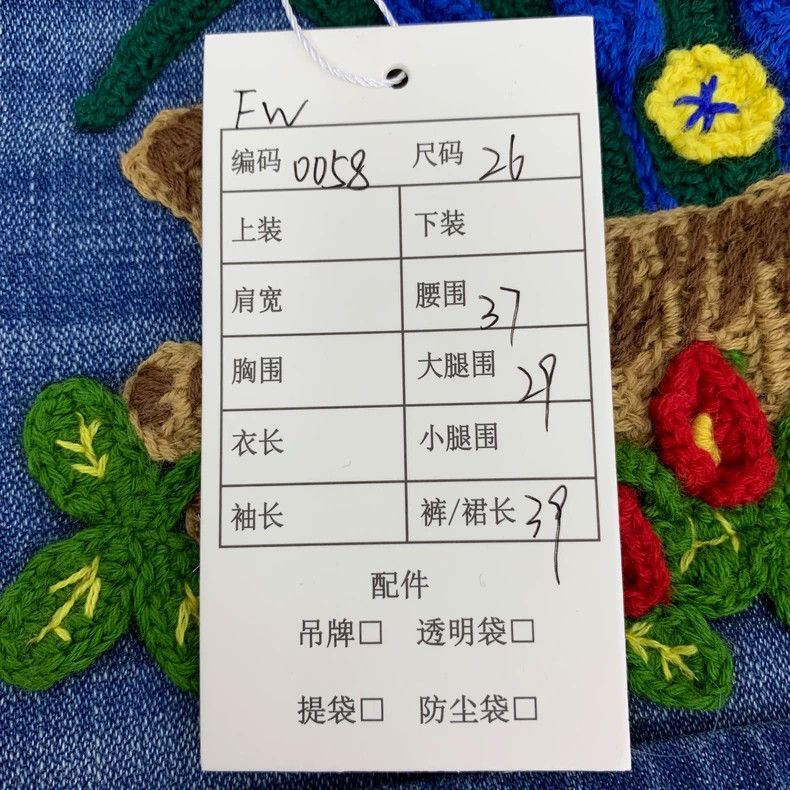 FW
编码 0058 尺码 26
上装 下装
肩宽 腰围 37
胸围 大腿围 29
衣长 小腿围
袖长 裤/裙长 39
配件
吊牌□ 透明袋□
提袋□ 防尘袋□